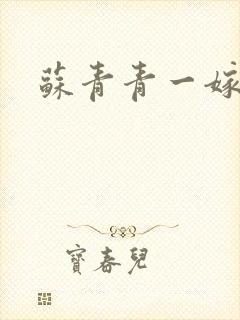 蘇青青一嫁
寶春兒